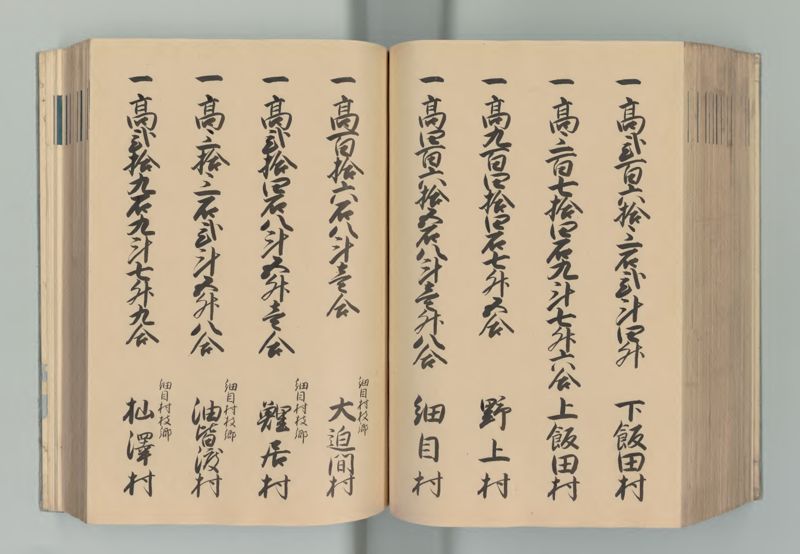 一 高弐百六拾三石弐斗四升 下飯田村
一 高三百七拾四石九斗七升六合 上飯田村
一 高九百四拾四石七升五合 野上村
一 高四百六拾五石八斗壱升八合 細目村
一 高百拾六石八斗壱合 細目村枝郷 大迫間村
一 高弐拾四石八斗五升壱合 細目村枝郷 鯉居村
一 高三拾三石弐斗五升八合 細目村枝郷 油皆渡村
一 高弐拾九石九斗七升九合 細目村枝郷 杣澤村